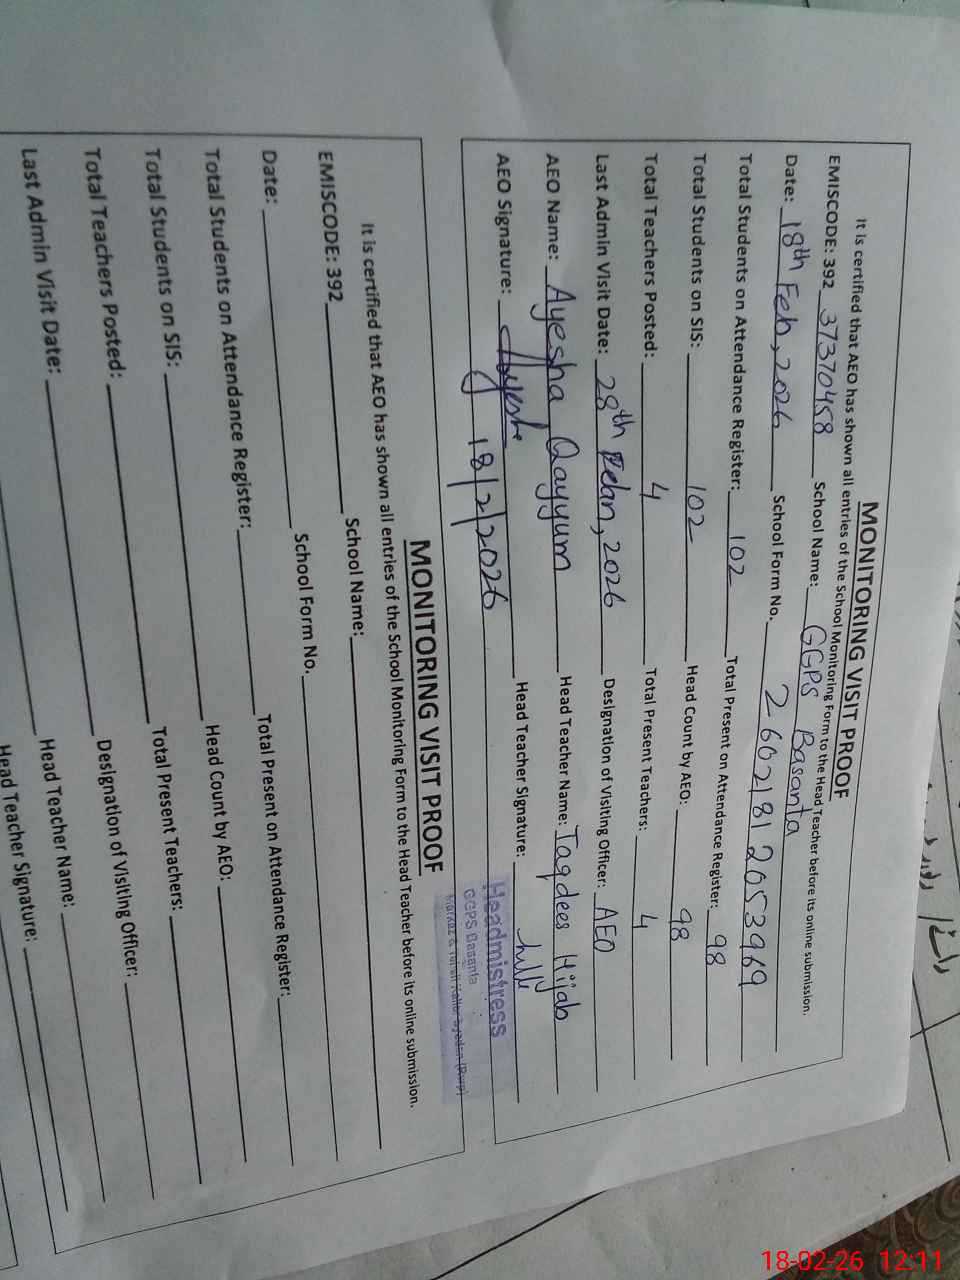 MONITORING VISIT PROOF
It is certified that AEO has shown all entries of the School Monitoring Form to the Head Teacher before its online submission.
EMISCODE: 392 37370458 School Name: GGPS Basanta
Date: 18th Feb, 2026 School Form No. 2602181 2053969
Total Students on Attendance Register: 102 Total Present on Attendance Register: 98
Total Students on SIS: 102 Head Count by AEO: 98
Total Teachers Posted: 4 Total Present Teachers: 4
Last Admin Visit Date: 28th 2026 Designation of Visiting Officer: AEO
AEO Name: Ayesha Qayyum Head Teacher Name: Taqdees Hijab
AEO Signature: Ayesha Head Teacher Signature:
18/2/2026
Headmistress
GGPS Basanta
MONITORING VISIT PROOF
It is certified that AEO has shown all entries of the School Monitoring Form to the Head Teacher before its online submission.
EMISCODE: 392 School Name:
Date: School Form No.
Total Students on Attendance Register: Total Present on Attendance Register:
Total Students on SIS: Head Count by AEO:
Total Teachers Posted: Total Present Teachers:
Last Admin Visit Date: Designation of Visiting Officer:
Head Teacher Name:
Head Teacher Signature:
18-02-26 12:11